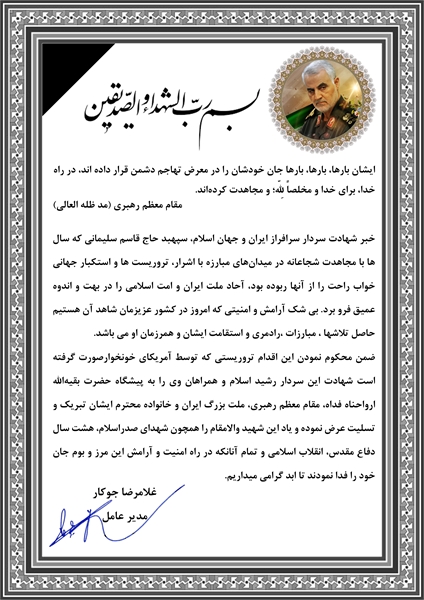 بسم ربّ الشهداء و الصدیقین
ایشان بارها، بارها، بارها جان خودشان را در معرض تهاجم دشمن قرار داده اند، در راه
خدا، برای خدا و مخلصاً لِلّه؛ و مجاهدت کرده‌اند.
مقام معظم رهبری (مد ظله العالی)
خبر شهادت سردار سرافراز ایران و جهان اسلام، سپهبد حاج قاسم سلیمانی که سال
ها با مجاهدت شجاعانه در میدان‌های مبارزه با اشرار، تروریست ها و استکبار جهانی
خواب راحت را از آنها ربوده بود، آحاد ملت ایران و امت اسلامی را در بهت و اندوه
عمیق فرو برد. بی شک آرامش و امنیتی که امروز در کشور عزیزمان شاهد آن هستیم
حاصل تلاشها ، مبارزات ،رادمری و استقامت ایشان و همرزمان او می باشد.
ضمن محکوم نمودن این اقدام تروریستی که توسط آمریکای خونخوارصورت گرفته
است شهادت این سردار رشید اسلام و همراهان وی را به پیشگاه حضرت بقیه‌الله
ارواحناه فداه، مقام معظم رهبری، ملت بزرگ ایران و خانواده محترم ایشان تبریک و
تسلیت عرض نموده و یاد این شهید والامقام را همچون شهدای صدراسلام، هشت سال
دفاع مقدس، انقلاب اسلامی و تمام آنانکه در راه امنیت و آرامش این مرز و بوم جان
خود را فدا نمودند تا ابد گرامی میداریم.
غلامرضا جوکار
مدیر عامل